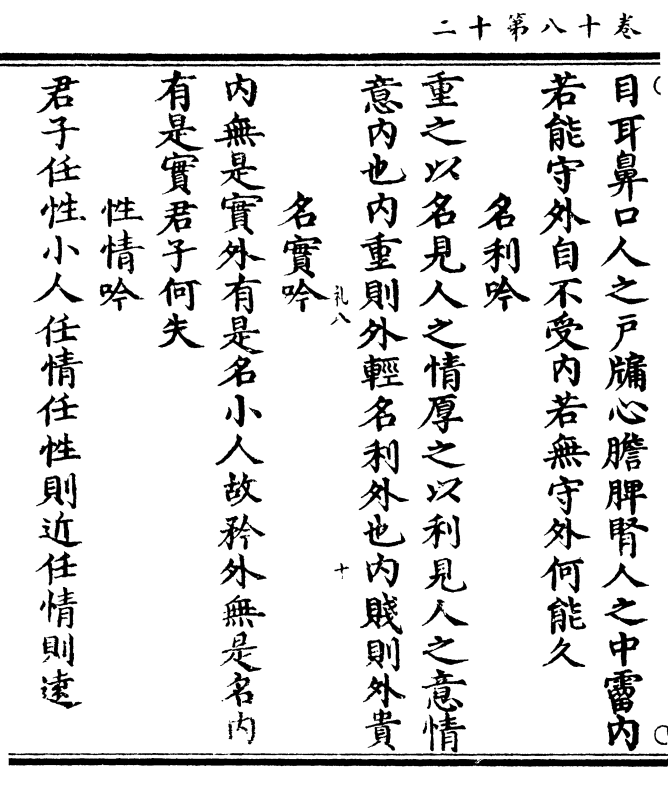 卷十八第十二
目耳鼻口人之戸牖心膽脾腎人之中霤内
若能守外自不受内若無守外何能久
名利吟
重之以名見人之情厚之以利見人之意情
意内也内重則外輕名利外也内賤則外貴
礼八
十
名實吟
内無是實外有是名小人故矜外無是名内
有是實君子何失
性情吟
君子任性小人任情任性則近任情則遠